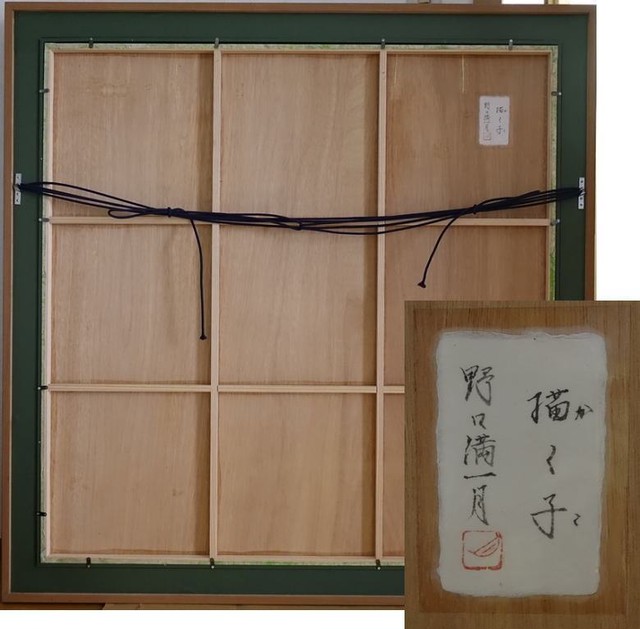 描く子
かこ
野口満一月